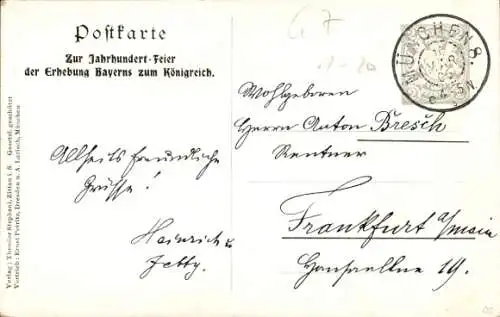 Postkarte
Zur Jahrhundert-Feier
der Erhebung Bayerns zum Königreich.
G 7
MÜNCHEN 8.
Wohlgeboren
Herrn Anton Bresch
Rentner
Frankfurt a/main
19.
Allseits freundliche
Grüsse!
Heinrich u
Jetty.
Verlag: Theodor Stephani, Zittau i. S. Gesetzl. geschützt
Vertrieb: Ernst Poititz, Dresden u. A. Larisch, München